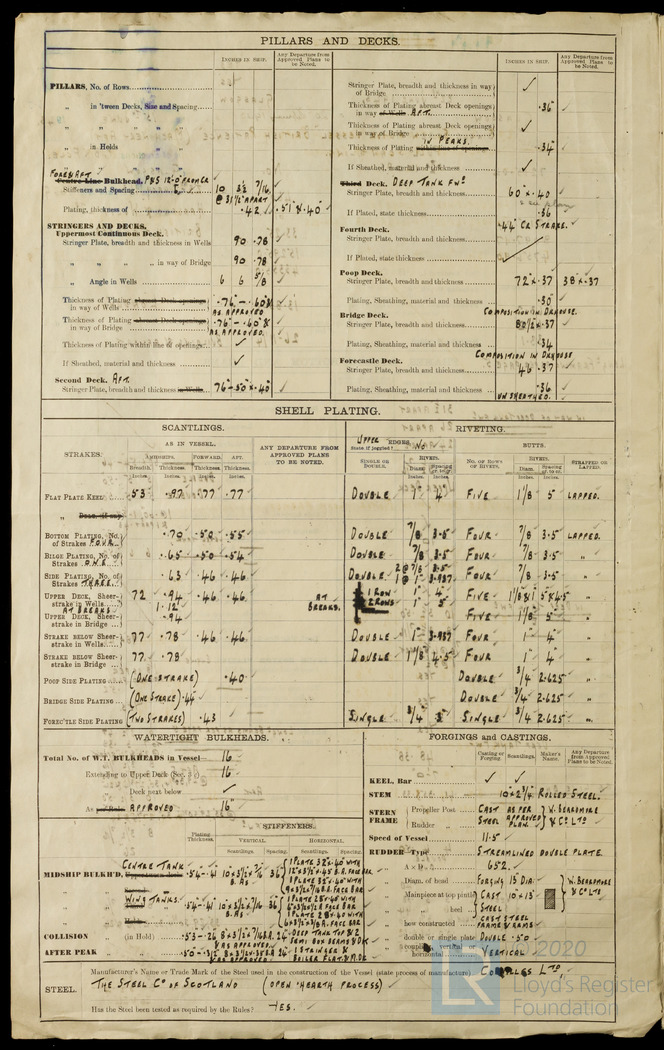 PILLARS AND DECKS.
INCHES IN SHIP.
Any Departure from Approved Plans to be Noted.
PILLARS, No. of Rows
„ in 'tween Decks, Size and Spacing
„ „ „ „
„ in Holds „ „
„ „ „ „
FORE & AFT
Centre Line Bulkhead. P&S 12'-0" FROM CR
Stiffeners and Spacing 10 3½ 7/16
@ 31½" APART
Plating, thickness of .42 .51 & .40
STRINGERS AND DECKS.
Uppermost Continuous Deck.
Stringer Plate, breadth and thickness in Wells 90 .78
„ „ „ „ in way of Bridge 90 .78
„ Angle in Wells 6 6 5/8
Thickness of Plating abreast Deck openings in way of Wells .76 - .60 &
AS APPROVED
Thickness of Plating abreast Deck openings in way of Bridge .76 - .60 &
AS APPROVED.
Thickness of Plating within line of openings ✓
If Sheathed, material and thickness ✓
Second Deck. AFT.
Stringer Plate, breadth and thickness in Wells 76 - .50 & .40
INCHES IN SHIP.
Any Departure from Approved Plans to be Noted.
Stringer Plate, breadth and thickness in way of Bridge ✓
Thickness of Plating abreast Deck openings in way of Wells AFT. .36
Thickness of Plating abreast Deck openings in way of Bridge ✓
IN PEAKS.
Thickness of Plating within line of openings .34
If Sheathed, material and thickness ✓
Third Deck. DEEP TANK FWD
Stringer Plate, breadth and thickness 60 × .40
If Plated, state thickness .36
.44 CR STRAKE.
Fourth Deck.
Stringer Plate, breadth and thickness
If Plated, state thickness ✓
Poop Deck.
Stringer Plate, breadth and thickness 72 × .37 38 × .37
Plating, Sheathing, material and thickness .30
COMPOSITION IN DKHOUSE.
Bridge Deck.
Stringer Plate, breadth and thickness 80½ × .37
Plating, Sheathing, material and thickness .34
COMPOSITION IN DKHOUSE
Forecastle Deck.
Stringer Plate, breadth and thickness 46 .37
Plating, Sheathing, material and thickness .36
UNSHEATHED.
SHELL PLATING.
SCANTLINGS.
RIVETING.
STRAKES.
AS IN VESSEL.
AMIDSHIPS. FORWARD. AFT.
Breadth. Thickness. Thickness. Thickness.
Inches. Inches. Inches. Inches.
ANY DEPARTURE FROM APPROVED PLANS TO BE NOTED.
UPPER EDGES.
State if joggled? No
SINGLE OR DOUBLE.
RIVETS.
Diam. Spacing cr. to cr.
BUTTS.
NO. OF ROWS OF RIVETS.
RIVETS.
Diam. Spacing cr. to cr.
STRAPPED OR LAPPED.
FLAT PLATE KEEL 53 .97 .77 .77 DOUBLE 1" 4" FIVE 1 1/8 5 LAPPED.
„ Dbld. (if any)
BOTTOM PLATING, No. of Strakes FOUR .70 .50 .55 DOUBLE 7/8 3.5 FOUR 7/8 3.5 LAPPED.
BILGE PLATING, No. of Strakes ONE .65 .50 .54 DOUBLE 7/8 3.5 FOUR 7/8 3.5 „
SIDE PLATING, No. of Strakes THREE .63 .46 .46 DOUBLE 2 @ 7/8 3.5 1 @ 1" 3.937 FOUR 7/8 3.5 „
UPPER DECK, Sheerstrake in Wells 72 .94 .46 .46 AT BREAKS. 1 ROW 1" 4" 2 ROWS 1" 5" FIVE 1 1/8 & 1 5 & 4.5 „
AT BREAKS 1.12
UPPER DECK, Sheerstrake in Bridge .94 FIVE 1 1/8 5 „
STRAKE BELOW Sheerstrake in Wells 77 .78 .46 .46 DOUBLE 1" 3.937 FOUR 1" 4" „
STRAKE BELOW Sheerstrake in Bridge 77 .78 DOUBLE 1 1/8 4.5 FOUR 1" 4" „
POOP SIDE PLATING (ONE STRAKE) .40 DOUBLE 3/4 2.625 „
BRIDGE SIDE PLATING (ONE STRAKE) .44 DOUBLE 3/4 2.625 „
FOREC'TLE SIDE PLATING (TWO STRAKES) .43 SINGLE 3/4 3" SINGLE 3/4 2.625 „
WATERTIGHT BULKHEADS.
Total No. of W.T. BULKHEADS in Vessel 16
Extending to Upper Deck 16
„ Deck next below ✓
As per Rule APPROVED 16
Plating Thickness.
STIFFENERS.
VERTICAL HORIZONTAL
Scantlings. Spacing. Scantlings. Spacing.
MIDSHIP BULKH'D, CENTRE TANK .54-.41 10×3½×7/16 B.AS 36 1 PLATE 32×.40 WITH
1 PLATE 35×.40 WITH
WING TANKS. .54-.41 10×3½×7/16 B.AS 36 1 PLATE 25×.40 WITH
1 PLATE 28×.40 WITH
COLLISION (in Hold) .53-.26 24 DEEP TANK TOP & 2
& AS APPROVED SEMI BOX BEAMS & DK
AFTER PEAK „ .50 24 1 STRINGER &
& AS APPROVED BOILER FLAT & DK
FORGINGS AND CASTINGS.
Casting or Forging.
Scantlings.
Maker's Name.
Any Departure from Approved Plans to be Noted.
KEEL, Bar ✓ ✓
STEM 10 × 2¾ ROLLED STEEL.
STERN FRAME Propeller Post CAST AS PER W. BEARDMORE
Rudder „ STEEL APPROVED PLAN. & CO LTD
Speed of Vessel 11.5
RUDDER Type STREAMLINED DOUBLE PLATE.
„ A × D 652.
„ Diam. of head FORGING 13 DIA. W. BEARDMORE & CO LTD
„ Mainpiece at top pintle CAST 10 × 13
„ „ heel STEEL
„ how constructed CAST STEEL FRAME & ARMS
„ double or single plate DOUBLE .50
„ coupling, vertical or horizontal VERTICAL
STEEL.
Manufacturer's Name or Trade Mark of the Steel used in the construction of the Vessel (state process of manufacture). COLVILLES LTD,
THE STEEL CO OF SCOTLAND (OPEN HEARTH PROCESS)
Has the Steel been tested as required by the Rules? YES.
2020
LR
Lloyd's Register
Foundation